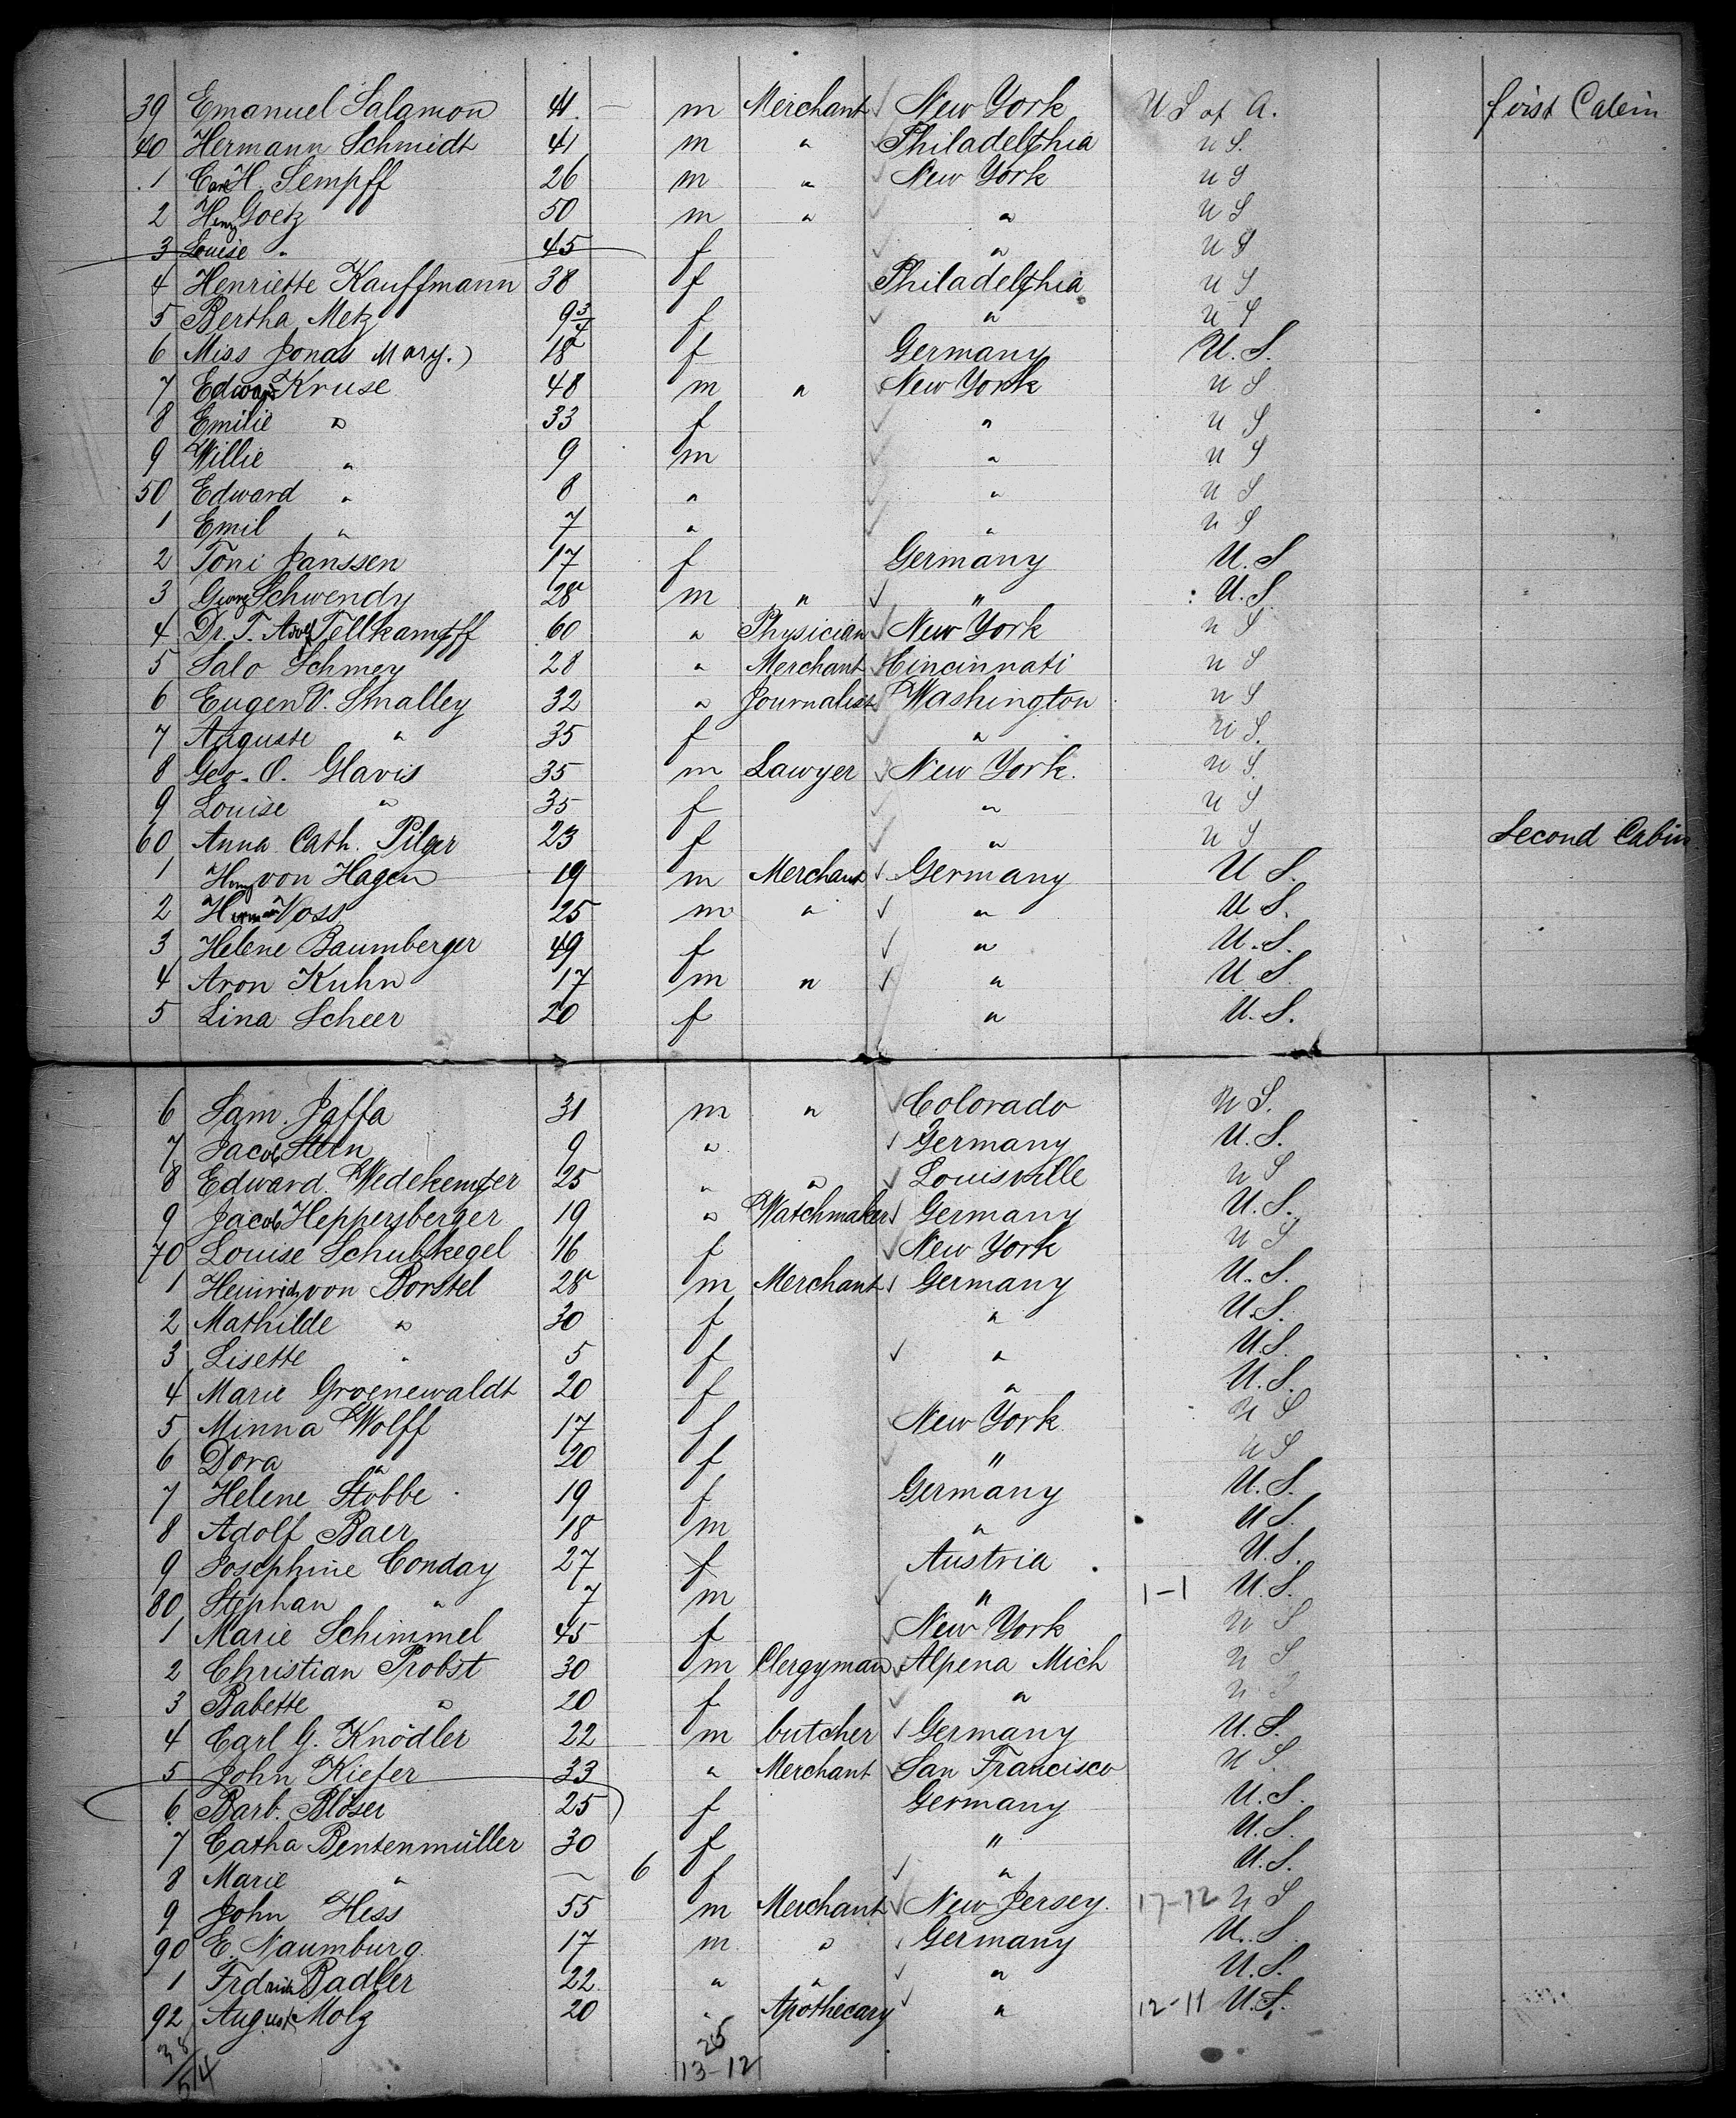 39 Emanuel Salamon 41 — m Merchant New York U S of A. first Cabin
40 Hermann Schmidt 41 m " Philadelphia U S.
1 Carl H. Sempff 26 m " New York U S
2 Henry Goetz 50 m " " U S
3 Louise " 45 f " U S
4 Henriette Kauffmann 38 f Philadelphia U S
5 Bertha Metz 9 3/4 f " U S
6 Miss Jonas Mary.) 18 f Germany U. S.
7 Edward Kruse 48 m " New York U S
8 Emilie " 33 f " U S
9 Willie " 9 m " U S
50 Edward " 8 " " U S
1 Emil " 7 " " U S
2 Toni Janssen 17 f Germany U. S
3 Georg Schwendy 28 m " " U. S.
4 Dr. T. Adolf Tellkampff 60 " Physician New York U S
5 Salo Schmey 28 " Merchant Cincinnati U S
6 Eugen V. Smalley 32 " Journalist Washington U S
7 Auguste " 35 f " U S.
8 Geo. O. Glavis 35 m Lawyer New York. U S.
9 Louise " 35 f " U S
60 Anna Cath. Pilger 23 f " U S Second Cabin
1 Henry von Hagen 19 m Merchant Germany U S.
2 Herman Voss 25 m " " U S.
3 Helene Baumberger 49 f " U. S.
4 Aron Kuhn 17 m " " U S
5 Lina Scheer 20 f " U. S.
6 Sam. Jaffa 31 m " Colorado U S.
7 Jacob Stern 9 " Germany U. S.
8 Edward Wedekemper 25 " " Louisville U S
9 Jacob Heppersberger 19 " Watchmaker Germany U. S.
70 Louise Schubkegel 16 f New York U S
1 Heinrich von Borstel 28 m Merchant Germany U. S.
2 Mathilde " 30 f " U. S.
3 Lisette " 5 f " U S.
4 Marie Groenewaldt 20 f " U. S.
5 Minna Wolff 17 f New York U S
6 Dora " 20 f " U S
7 Helene Stobbe 19 f Germany U. S.
8 Adolf Baer 18 m " U S.
9 Josephine Conday 27 f Austria U. S.
80 Stephan " 7 m " 1-1 U. S.
1 Marie Schimmel 45 f New York U S
2 Christian Probst 30 m Clergyman Alpena Mich U S
3 Babette " 20 f " U S
4 Carl G. Knödler 22 m butcher Germany U. S.
5 John Kiefer 33 " Merchant San Francisco U S.
6 Barb. Blöser 25 f Germany U. S.
7 Catha Bentenmüller 30 f " U. S.
8 Marie " — 6 f " U. S.
9 John Hess 55 m Merchant New Jersey. 17-12 U S
90 E. Naumburg 17 m " Germany U. S.
1 Frdrich Badler 22 " " " U. S.
92 August Molz 20 " Apothecary " 12-11 U. S.
38 25
54 13-12